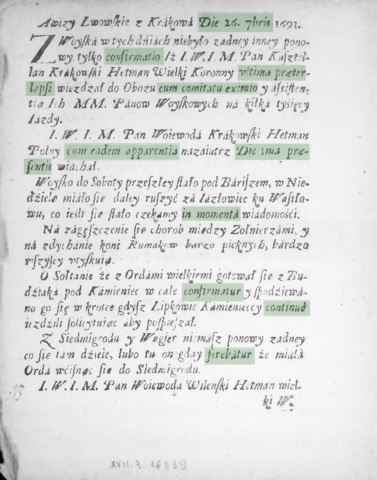 Awizy Lwowskie z Krakowá Die 26. 7bris 1692.
Z Woyská w tych dniách niebyło zadney inney pono-
wy tylko confirmatio Iż I. W. I. M. Pan Kasztel-
lan Krákowski Hetman Wielki Koronny ultima præter-
lapsi wieżdzał do Obozu cum comitatu eximio y assisten-
tia Ich MM. Pánow Woyskowych ná kilká tysięcy
Iázdy.
I. W. I. M. Pan Woiewodá Krákowski Hetman
Polny cum eadem apparentia názáiutrz Die ima præ-
sentis wiachał.
Woysko do Soboty przeszłey stało pod Báriszem, w Nie-
dziele miáło sie dáley ruszyć zá Iázłowiec ku Wasiło-
wu, co ieśli sie stáło czekamy in momentá wiádomości.
Ná zágęszczenie sie chorob między Zołnierzámi, y
ná zdychánie koni Rumakow bárzo pięknych, bárdzo
wszyscy utyskuią.
O Sołtanie że z Ordámi wielkiemi gotował sie z Bu-
dźiaká pod Kámieniec w cále confirmatur y spodźiewá-
no go się w krotce gdysz Lipkowie Kámienieccy continuò
ieźdźili solicytuiąc áby pospieszał.
Z Siedmigrodu y Węgier nimász ponowy zadney
co sie tám dźieie, lubo tu on gdáy ferebatur że miáłá
Ordá weiśnąć sie do Siedmigrodu.
I. W. I. M. Pan Woiewodá Wileński Hetman wiel-
ki W.
XVII. 3.